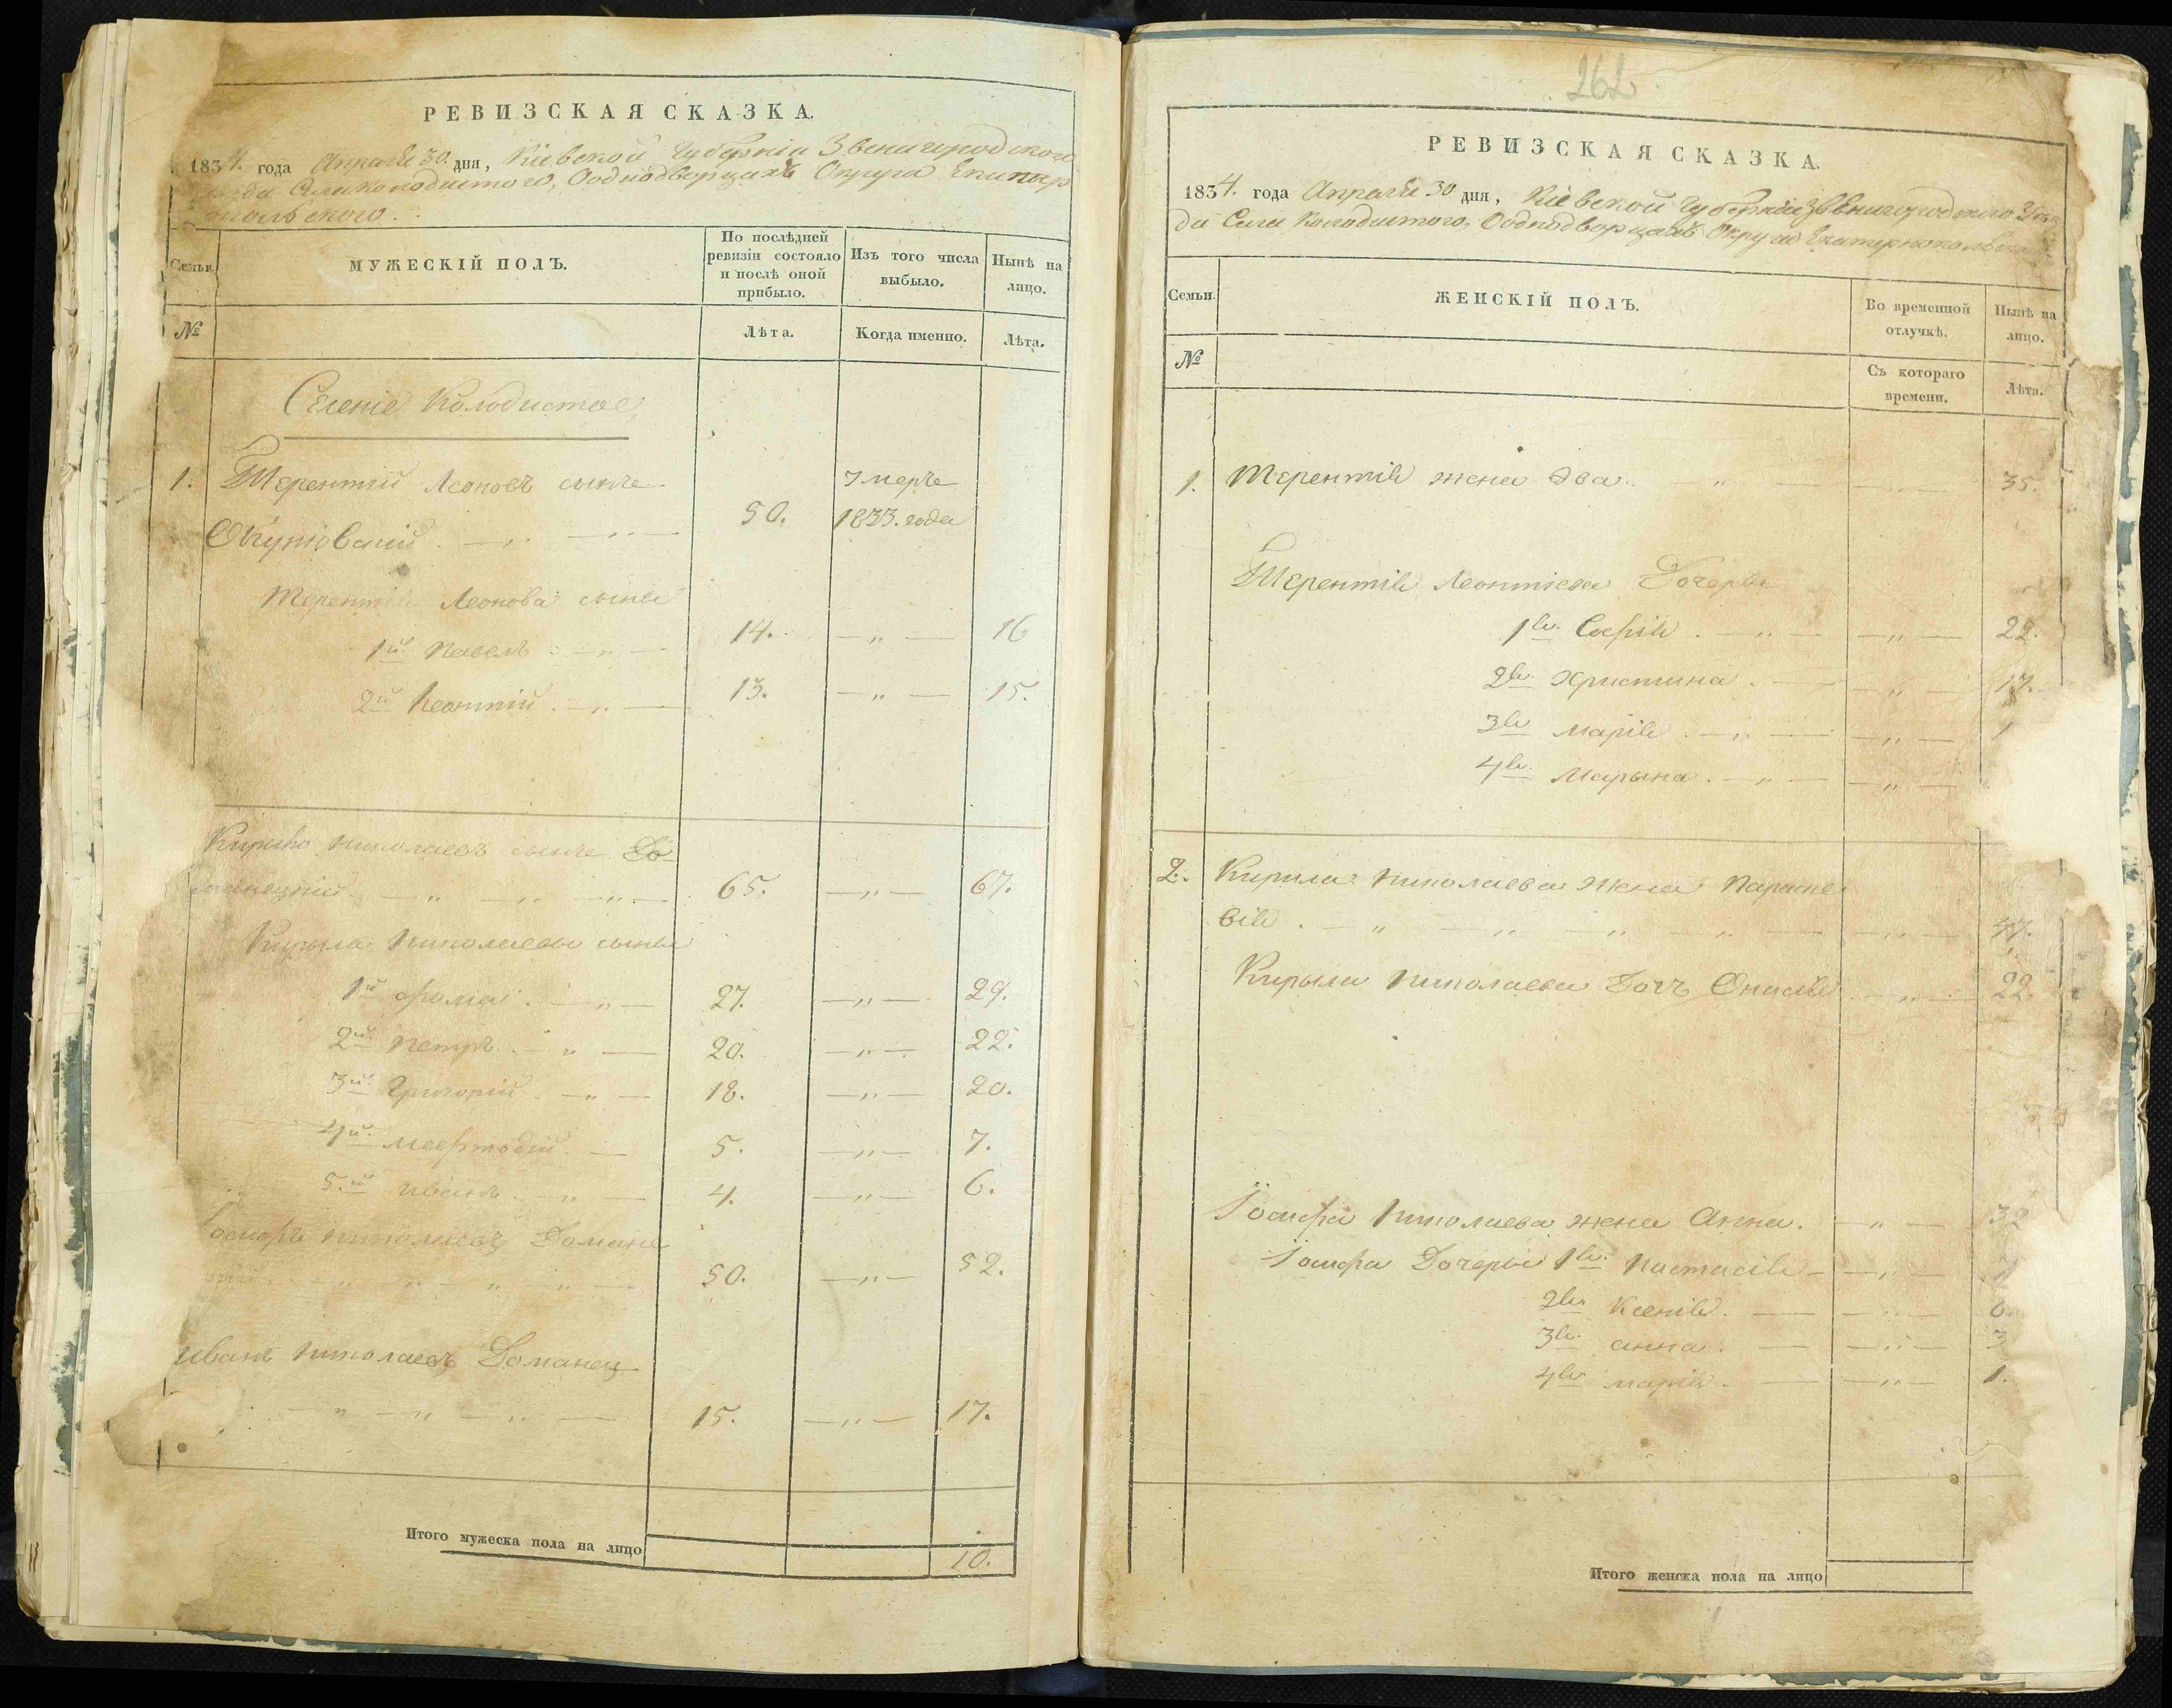 РЕВИЗСКАЯ СКАЗКА.
1834. года Апреля 30. дня, Кіевской Губерніи Звенигородского
Села Колодистого, Однодворцахъ Округа Екатер
польского.
Семьи.
МУЖЕСКІЙ ПОЛЪ.
По послѣдней ревизіи состояло и послѣ оной прибыло.
Изъ того числа выбыло.
Нынѣ на лицо.
№
Лѣта.
Когда именно.
Лѣта.
Селеніе Колодистое,
1. Терентий Леоновъ сынъ умре
50. 1833. года
Терентія Леонова сыны
1й Павелъ 14. — „ — 16
2й Леонтій 13. — „ — 15.
Кирило Николаевъ сынъ До
манецкій 65. — „ — 67.
Кирыла Николаевы сыны
1й Фома 27. — „ — 29.
2й Петръ 20. — „ — 22.
3й Григорій 18. — „ — 20.
4й Мефтодій 5. — „ — 7.
5й Иванъ 4. — „ — 6.
Іосифъ Николаевъ Доманец
кій 50. — „ — 52.
Иванъ Николаевъ Доманец
15. — „ — 17.
Итого мужеска пола на лицо 10.
262
РЕВИЗСКАЯ СКАЗКА.
1834. года Апреля 30 дня, Кіевской Губерніи Звенигородского Уѣз
да Села Колодистого, Однодворцахъ Округи Екатеринопольского
Семьи.
ЖЕНСКІЙ ПОЛЪ.
Во временной отлучкѣ.
Нынѣ на лицо.
№
Съ котораго времени.
Лѣта.
1. Терентія жена Эва. — „ — 35.
Терентія Леонтіева Дочеры
1я Софія — „ — 22.
2я Христина — „ — 17.
3я Марія — „ — 1
4я Марына — „ —
2. Кирила Николаева жена Параске
вія — „ — 47.
Кирыла Николаева Дочъ 22
Іосифа Николаева жена Анна. — „ — 32
Іосифа Дочеры 1я Настасія — „ —
2я Ксенія — „ — 6.
3я анна — „ — 3
4я марія — „ — 1.
Итого женска пола на лицо